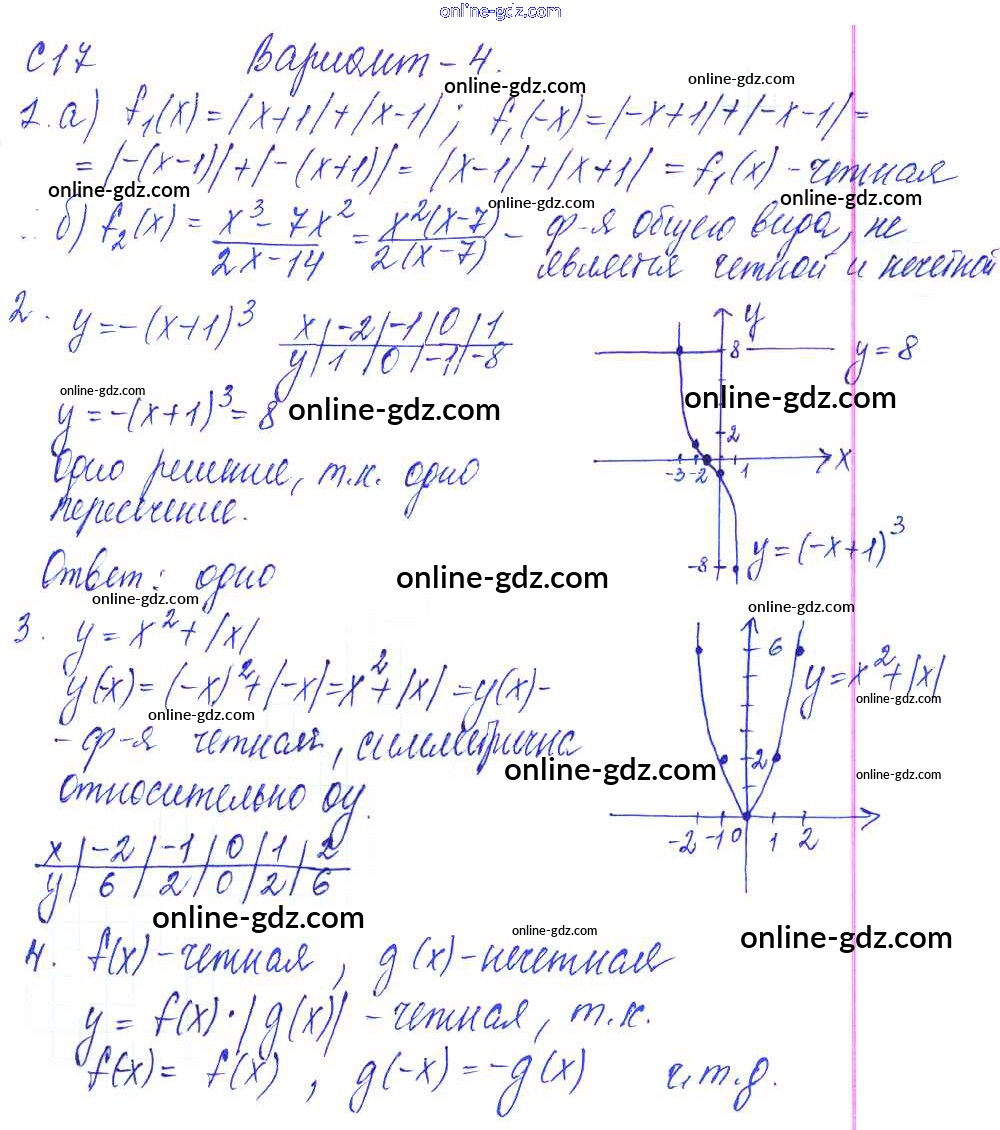 online-gdz.com
С17 Вариант-4.
online-gdz.com online-gdz.com
1. а) f₁(x) = |x+1|+|x-1| ; f₁(-x) = |-x+1|+|-x-1| =
= |-(x-1)|+|-(x+1)| = |x-1|+|x+1| = f₁(x) - четная
online-gdz.com online-gdz.com online-gdz.com
б) f₂(x) = (x³-7x²)/(2x-14) = x²(x-7)/2(x-7) - ф-я общего вида, не
является четной и нечетной
2. y = -(x+1)³
x | -2 | -1 | 0 | 1
y | 1 | 0 | -1 | -8
y
8 y = 8
online-gdz.com
y = -(x+1)³ = 8 online-gdz.com online-gdz.com
2
Одно решение, т.к. одно
x
-3 -2 1
пересечение.
-8 y = (-x+1)³
Ответ: одно online-gdz.com
online-gdz.com online-gdz.com
3. y = x² + |x|
6 y = x²+|x|
y(-x) = (-x)²+|-x| = x²+|x| = y(x) -
online-gdz.com online-gdz.com
- ф-я четная, симметрична
2 online-gdz.com online-gdz.com
относительно oy.
-2 -1 0 1 2
x | -2 | -1 | 0 | 1 | 2
y | 6 | 2 | 0 | 2 | 6
online-gdz.com online-gdz.com online-gdz.com
4. f(x) - четная, g(x) - нечетная
y = f(x)·|g(x)| - четная, т.к.
f(-x) = f(x), g(-x) = -g(x) ч.т.д.